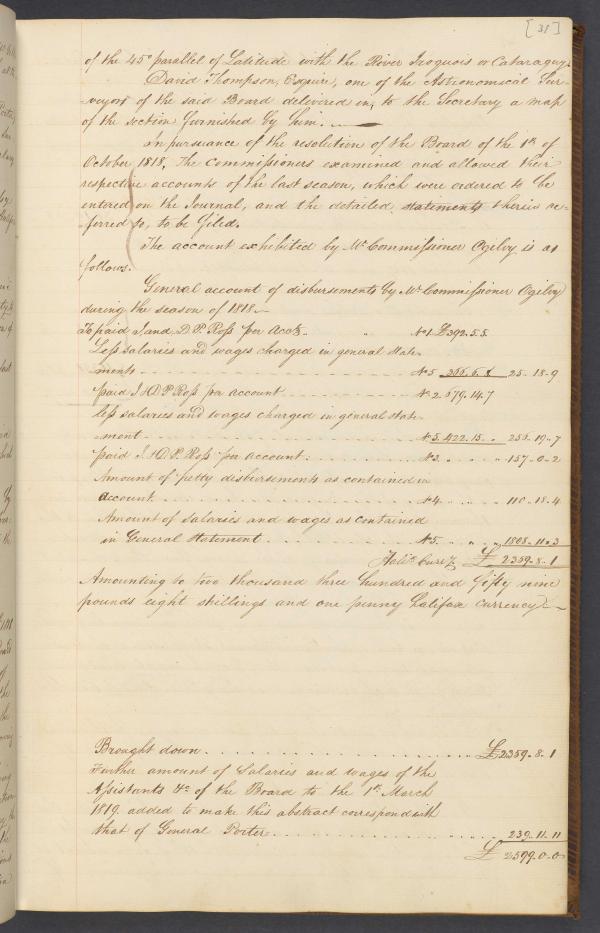 [38]
of the 45° parallel of Latitude with the River Iroquois or Cataraguy.
David Thompson, Esquire, one of the Astronomical Sur-
veyors of the said Board delivered in, to the Secretary a map
of the section furnished by him.
In pursuance of the resolution of the Board of the 1st of
October 1818, The Commissioners examined and allowed their
respective accounts of the last season, which were ordered to be
entered on the Journal, and the detailed statements therein re-
ferred to, to be filed.
The account exhibited by Mr Commissioner Ogilvy is as
follows.
General account of disbursements by Mr Commissioner Ogilvy
during the season of 1818
To paid J. and D. P. Ross per Acct No 1 £392.5.5
Less salaries and wages charged in general state-
ment No 5 366.6.8 25-18-9
paid J & D P Ross per account No 2 679.14.7
less salaries and wages charged in general state-
ment No 5 422.15 256-19-7
paid J. & D. P. Ross per account No 3 157-0-2
Amount of petty disbursements as contained in
account No 4 110-18-4
Amount of salaries and wages as contained
in General Statement No 5 1808-11-3
Halifx Curcy £2359-8-1
Amounting to two thousand three hundred and fifty nine
pounds eight shillings and one penny halifax currency.
Brought down £2359-8-1
Further amount of Salaries and wages of the
Assistants &c of the Board to the 1st March
1819 added to make this abstract correspond with
that of General Porter 239.11.11
£2599.0.0